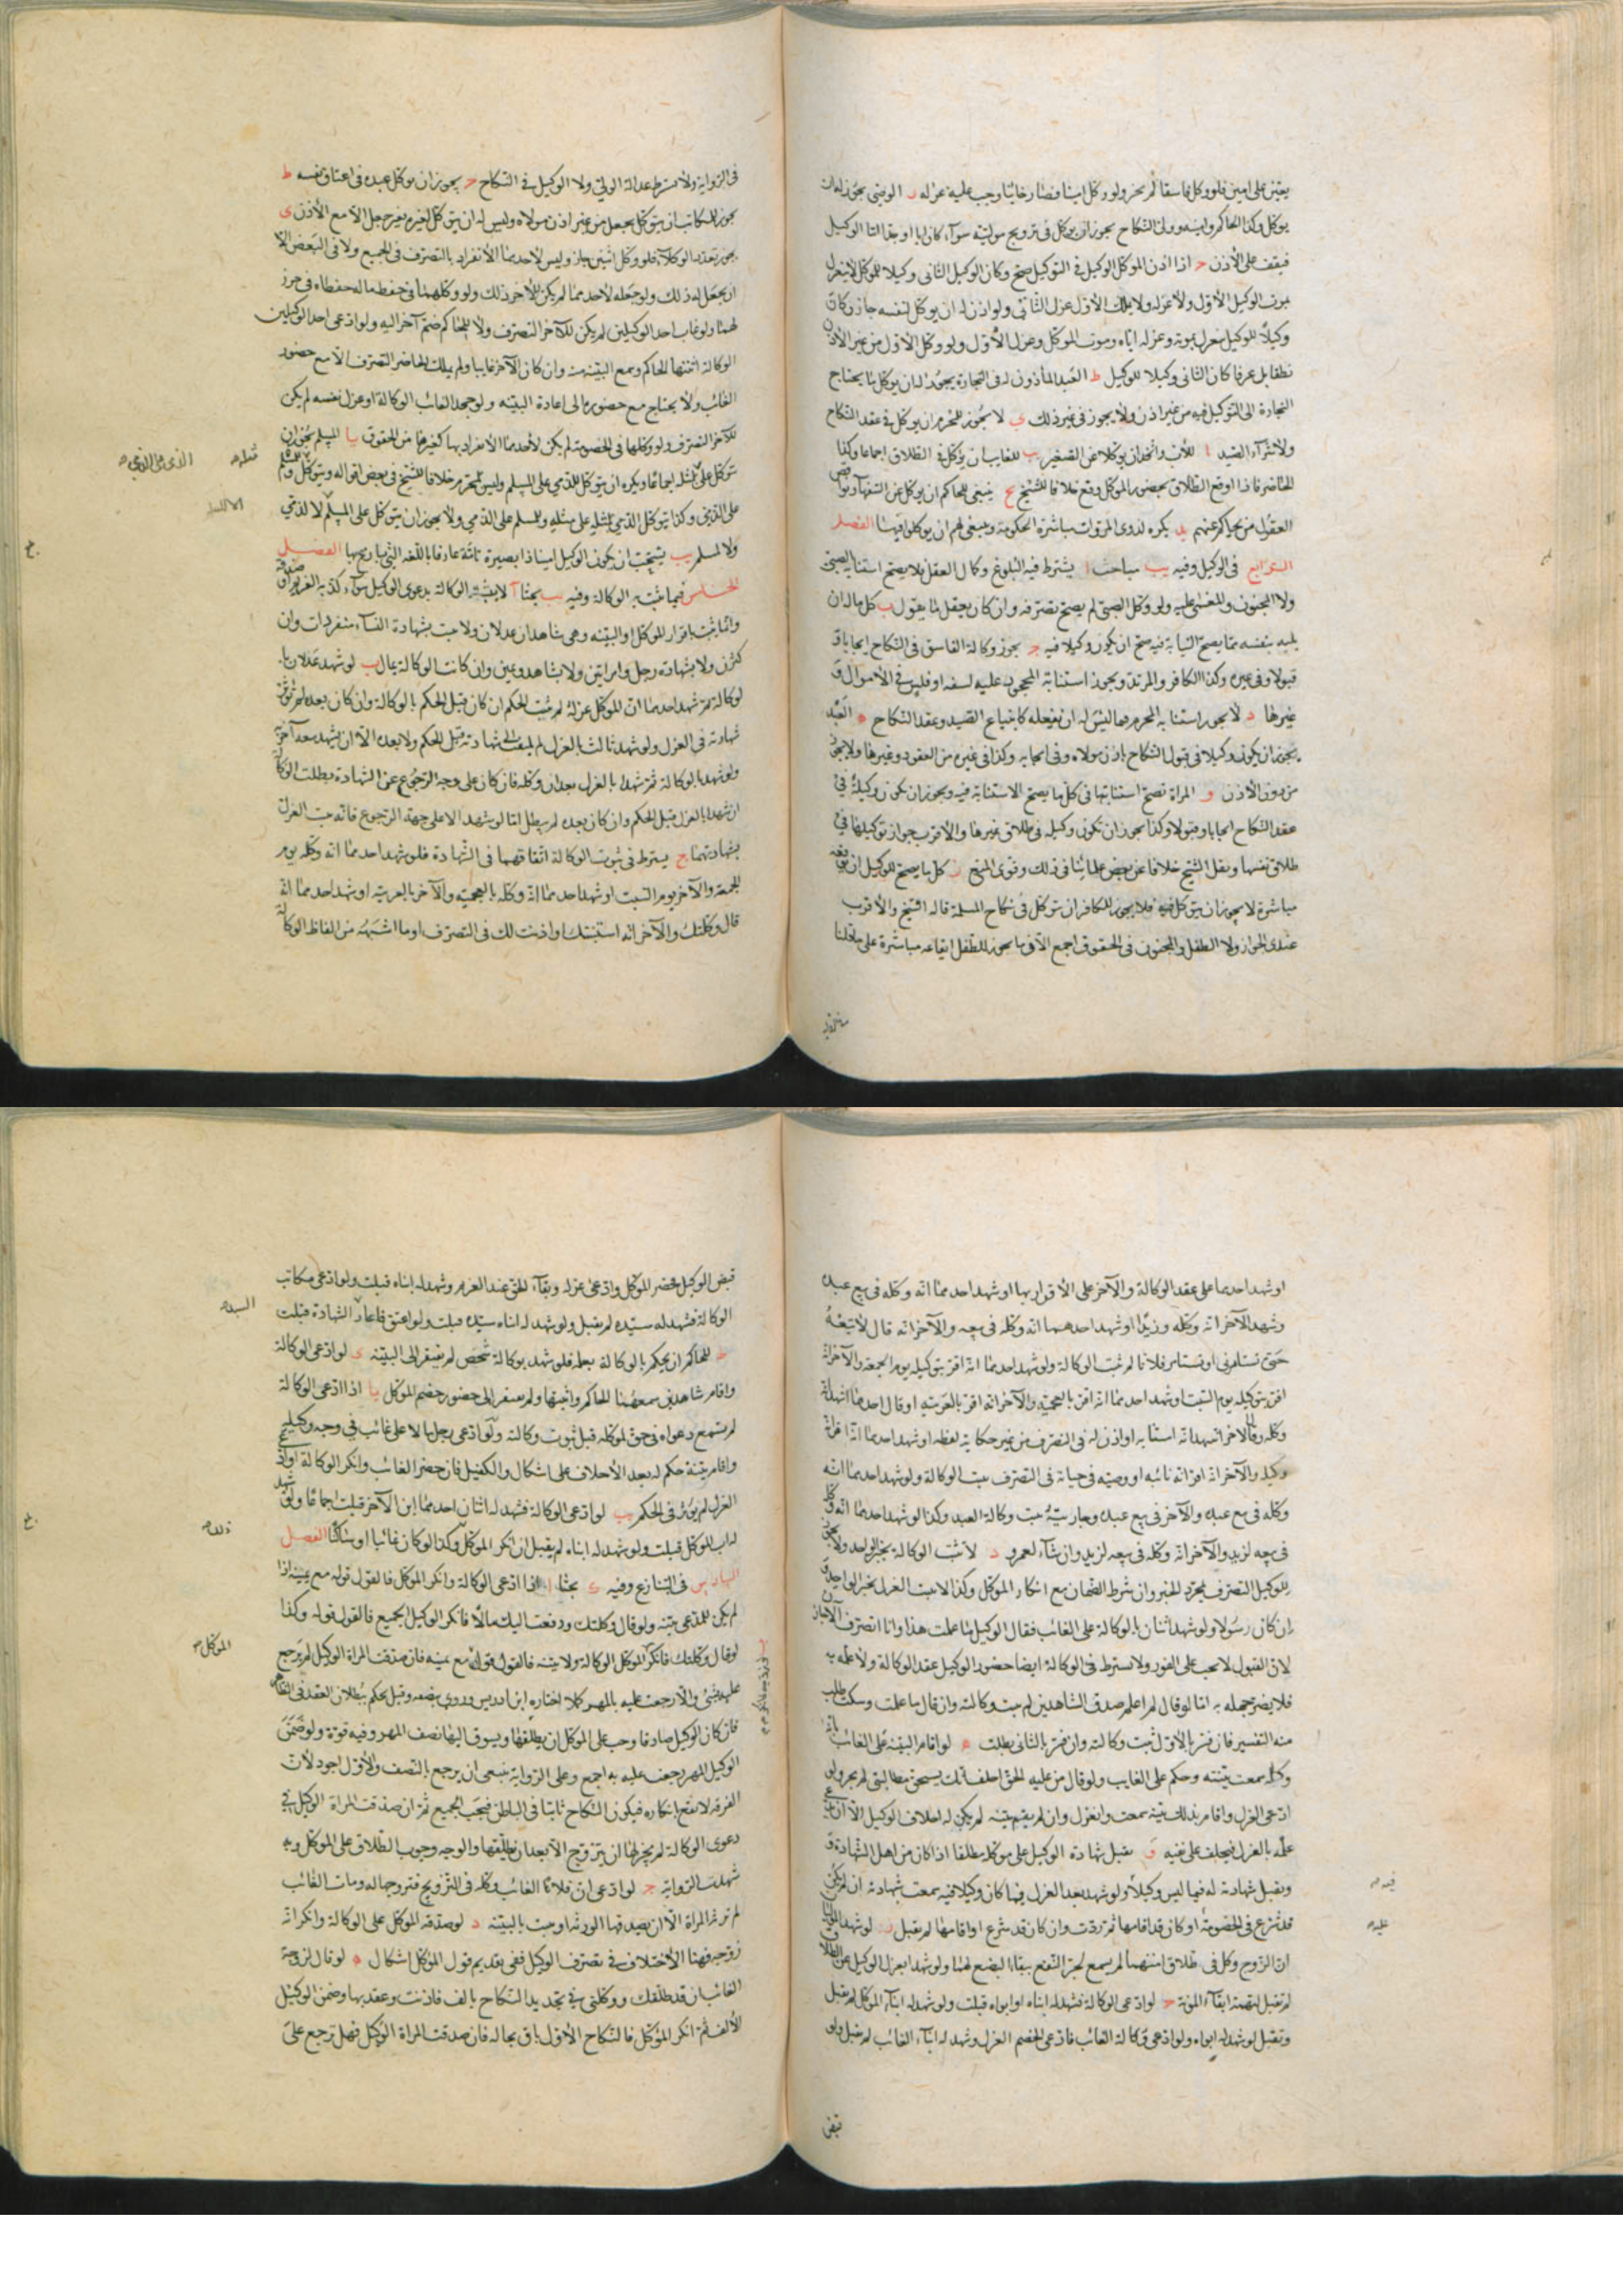 يعين على امين فلو وكل فاسقا لم يجز ولو وكل امينا فصار خائنا وجب عليه عزله ز الوصي يجوز له ان
يوكل وكذا الحاكم وامينه وولي النكاح يجوز ان يوكل في تزويج موليته سوآء كان ابا او جدا اما الوكيل
فيقف على الأذن ح اذا اذن الموكل للوكيل في التوكيل صح وكان الوكيل الثانى وكيلا للموكل لا ينعزل
بموت الوكيل الأول ولا عزله ولا يملك الأول عزل الثانى ولو اذن له ان يوكل لنفسه جاز وكان
وكيلاً للوكيل ينعزل بموته وعزله اياه وموت الموكل وعزل الأول ولو وكل الأول من غير الأذن
نطقا بل عرفا كان الثانى وكيلا للوكيل ط العبد المأذون له فى التجارة يجوز له ان يوكل فيما يحتاج
التجارة الى التوكيل فيه من غير اذن ولا يجوز فى غير ذلك ى لا يجوز للمحرم ان يوكل فى عقد النكاح
ولا شرآء الصيد يا للأب والجد ان يوكلا عن الصغير يب للغايب ان يوكل فى الطلاق اجماعا وكذا
الحاضر فاذا اوقع الطلاق بحضور الموكل وقع خلافا للشيخ يج ينبغى للحاكم ان يوكل عن السفهآء وناقصى
العقول من يحاكم عنهم يد يكره لذوى المروات مباشرة الحكومة وينبغى لهم ان يوكلوا فيها الفصل
الرابع فى الوكيل وفيه يب مباحث ا يشترط فيه البلوغ وكمال العقل فلا يصح استنابة الصبى
ولا المجنون والمغشى عليه ولو وكل الصبى لم يصح تصرفه وان كان يعقل ما يقول ب كل ما له ان
يليه بنفسه مما يصح النيابة فيه صح ان يكون وكيلا فيه ج يجوز وكالة الفاسق فى النكاح ايجابا و
قبولا وفى غيره وكذا الكافر والمرتد ويجوز استنابة المحجور عليه لسفه او فلس فى الأموال و
غيرها د لا يجوز استنابة المحرم فيما ليس له ان يفعله كابتياع الصيد وعقد النكاح ه العبد
يجوز ان يكون وكيلا فى قبول النكاح باذن مولاه وفى ايجابه وكذا فى غيره من العقود وغيرها ولا يجوز
من دون الأذن و المراة تصح استنابتها فى كل ما يصح الاستنابة فيه ويجوز ان تكون وكيلة فى
عقد النكاح ايجابا وقبولا وكذا يجوز ان تكون وكيلة فى طلاق غيرها والأقرب جواز توكيلها فى
طلاق نفسها ونقل الشيخ خلافا عن بعض علمائنا فى ذلك وقوى المنع ز كل ما يصح للوكيل ان يوقعه
مباشرة لا يجوز ان يتوكل فيه فلا يجوز للكافر ان يتوكل فى نكاح المسلمة قاله الشيخ والأقرب
عندى الجواز ولا الطفل والمجنون فى الحقوق اجمع الا فى ما يجوز للطفل ايقاعه مباشرة على ما قلنا
فى الرواية ولا يشترط عدالة الولى ولا الوكيل فى النكاح ح يجوز ان يوكل عبده فى اعتاق نفسه ط
يجوز للمكاتب ان يتوكل بجعل من غير اذن مولاه وليس له ان يتوكل لغيره بغير جعل الا مع الأذن ى
يجوز تعدد الوكلآء فلو وكل اثنين جاز وليس لأحدهما الأنفراد بالتصرف فى الجميع ولا فى البعض الا
ان يجعل له ذلك ولو جعله لأحدهما لم يكن للأخر ذلك ولو وكلهما فى حفظ ماله حفظاه فى حرز
لهما ولو غاب احد الوكيلين لم يكن للآخر التصرف ولا للحاكم ضم آخر اليه ولو ادعى احد الوكيلين
الوكالة اثبتها الحاكم وسمع البينة منه وان كان الآخر غايبا ولم يملك الحاضر التصرف الا مع حضور
الغائب ولا يحتاج مع حضوره الى اعادة البينة ولو جحد الغائب الوكالة او عزل نفسه لم يكن
للآخر التصرف ولو وكلهما فى الخصومة لم يكن لأحدهما الأنفراد بها كغيرها من الحقوق يا المسلم يجوز ان
يتوكل على مثله اجماعا ويكره ان يتوكل للذمى على المسلم وليس بمحرم خلافا للشيخ فى بعض اقواله ويتوكل
على الذمى وكذا يتوكل الذمى لمثله على مثله وللمسلم على الذمى ولا يجوز ان يتوكل على المسلم لا لذمى
ولا لمسلم يب يستحب ان يكون الوكيل امينا ذا بصيرة تامة عارفا باللغة التى يحاور بها الفصل
الخامس فيما تثبت به الوكالة وفيه يب بحثا آ لا يثبت الوكالة بدعوى الوكيل سوآء كذبه الغريم او صدقه
وانما يثبت باقرار الموكل او البينة وهى شاهدان عدلان ولا يثبت بشهادة النسآء منفردات وان
كثرن ولا بشهادة رجل وامراتين ولا بشاهد ويمين وان كانت الوكالة بمال ب لو شهد عدلان با
لوكالة ثم شهد احدهما ان الموكل عزله لم يثبت الحكم ان كان قبل الحكم بالوكالة وان كان بعده لم تؤثر
شهادته فى العزل ولو شهد ثالث بالعزل لم يلتفت الى شهادته قبل الحكم ولا بعده الا ان يشهد معه آخر
ولو شهدا بالوكالة ثم شهدا بالعزل بعد ان وكله فان كان على وجه الرجوع عن الشهادة بطلت الوكالة
ان شهدا بالعزل قبل الحكم وان كان بعده لم يبطل اما لو شهدا لا على جهة الرجوع فانه يثبت العزل
بشهادتهما ج يشترط فى ثبوت الوكالة اتفاقهما فى الشهادة فلو شهد احدهما انه وكله يوم
الجمعة والآخر يوم السبت او شهد احدهما انه وكله بالعجمية والآخر بالعربية او شهد احدهما انه
قال وكلتك والآخر انه استنبتك واذنت لك فى التصرف او ما اشبهه من الفاظ الوكالة
او شهد احدهما على عقد الوكالة والآخر على الأقرار بها او شهد احدهما انه وكله فى بيع عبده
وشهد الآخر انه وكله وزيدًا او شهد احدهما انه وكله فى بيعه والآخر انه قال لا تبعه
حتى تستامرنى او تستامر فلانا لم تثبت الوكالة ولو شهد احدهما انه اقر بتوكيله يوم الجمعة والآخر انه
اقر بتوكيله يوم السبت او شهد احدهما انه اقر بالعجمية والآخر انه اقر بالعربية او قال احدهما اشهد انه
وكله وقال الآخر اشهد انه استنابه او اذن له فى التصرف من غير حكاية لفظه او شهد احدهما انه اقر انه
وكيله والآخر انه اقر انه نائبه او وصيه فى حياته فى التصرف ثبت الوكالة ولو شهد احدهما انه
وكله فى بيع عبده والآخر فى بيع عبده وجاريته ثبت وكالة العبد وكذا لو شهد احدهما انه وكله
فى بيعه لزيد والآخر انه وكله فى بيعه لزيد وان شآء لعمرو د لا تثبت الوكالة بخبر الواحد ولا يجوز
للوكيل التصرف بمجرد الخبر وان شرط الضمان مع انكار الموكل وكذا لا يثبت العزل بخبر الواحد و
ان كان رسولا ولو شهد اثنان بالوكالة على الغائب فقال الوكيل ما علمت هذا وانا اتصرف الآن جاز
لأن القبول لا يجب على الفور ولا يشترط فى الوكالة ايضا حضور الوكيل عقد الوكالة ولا علمه به
فلا يضر جهله به اما لو قال لم اعلم صدق الشاهدين لم يثبت وكالته وان قال ما علمت وسكت طلب
منه التفسير فان فسر بالأول ثبت وكالته وان فسر بالثانى بطلت ه لو اقام البينة على الغائب بانه
وكله سمعت بينته وحكم على الغايب ولو قال من عليه الحق احلف انك تستحق مطالبتى لم يجز ولو
ادعى العزل واقام بذلك بينة سمعت وانعزل وان لم يقم بينة لم يكن له احلاف الوكيل الا ان يدعى
علمه بالعزل فيحلف على نفيه و تقبل شهادة الوكيل على موكله مطلقا اذا كان من اهل الشهادة و
وتقبل شهادته له فيما ليس وكيلا ولو شهد بعد العزل فيما كان وكيلا فيه سمعت شهادته ان لم يكن
قد شرع فى الخصومة او كان قد اقامها ثم ردت وان كان قد شرع او اقامها لم تقبل ز لو شهد المولى
ان الزوج وكل فى طلاق امتهما لم يسمع لجر النفع ببقاء البضع لهما ولو شهدا بعزل الوكيل عن الطلاق
لم تقبل لتهمة ابقآء المؤنة ح لو ادعى الوكالة فشهد له ابناه او ابواه قبلت ولو شهد له ابنآء الموكل لم تقبل
وتقبل لو شهد له ابواه ولو ادعى وكالة الغائب فادعى الخصم العزل وشهد له ابنآء الغائب لم تقبل ولو
قبض الوكيل فحضر الموكل وادعى عزله وبقآء الحق عند الغريم وشهد له ابناه قبلت ولو ادعى مكاتب
الوكالة فشهد له سيده لم تقبل ولو شهد له ابناه سيده قبلت ولو اعتق فاعاد الشهادة قبلت
ط للحاكم ان يحكم بالوكالة بعلمه فلو شهد بوكالة شخص لم يفتقر الى البينة ى لو ادعى الوكالة
واقام شاهدين سمعهما الحاكم واثبتها ولم يفتقر الى حضور خصم الموكل يا اذا ادعى الوكالة
لم تسمع دعواه فى حق لموكله قبل ثبوت وكالته ولو ادعى رجل مالا على غائب فى وجه وكيله
واقام بينة حكم له بعد الأحلاف على اشكال والكفيل فان حضر الغائب وانكر الوكالة او ادعى
العزل لم يؤثر فى الحكم يب لو ادعى الوكالة فشهد له اثنان احدهما ابن الآخر قبلت اجماعا ولو شهد
له اب الموكل قبلت ولو شهد له ابناه لم يقبل ان انكر الموكل وكذا لو كان غائبا او ساكتا الفصل
السادس فى التنازع وفيه ى بحثا ا اذا ادعى الوكالة وانكر الموكل فالقول قوله مع يمينه اذا
لم يكن للمدعى بينة ولو قال وكلتك ودفعت اليك مالا فانكر الوكيل الجميع فالقول قوله وكذا
لو قال وكلتك فانكر الموكل الوكالة ولا بينة فالقول قوله مع يمينه فان صدقت المراة الوكيل لم يرجع
عليه بشئ والا رجعت عليه بالمهر كملا اختاره ابن ادريس وروى بنصفه وقيل يحكم ببطلان العقد فى الظاهر
فان كان الوكيل صادقا وجب على الموكل ان يطلقها ويسوق اليها نصف المهر وفيه قوة ولو ضمن
الوكيل المهر رجعت عليه به اجمع وعلى الرواية ينبغى ان يرجع بالنصف والأول اجود لأن
الفرقة لا تقع بانكاره فيكون النكاح ثابتا فى الباطن فيجب الجميع ثم ان صدقت المراة الوكيل فى
دعوى الوكالة لم يجز لها ان يتزوج الا بعد ان يطلقها والوجه وجوب الطلاق على الموكل وبه
شهدت الرواية ج لو ادعى ان فلانًا الغائب وكله فى التزويج فتزوجها له ومات الغائب
لم ترثه المراة الا ان يصدقها الورثة او يثبت بالبينة د لو صدقه الموكل على الوكالة وانكر انه
زوجه فهنا الأختلاف فى تصرف الوكيل ففى تقديم قول الموكل اشكال ه لو قال لزوجة
الغائب ان قد طلقك ووكلنى فى تجديد النكاح بالف فاذنت وعقد بها وضمن الوكيل
الألف ثم انكر الموكل فالنكاح الأول باق بحاله فان صدقت المراة الوكيل فهل ترجع على